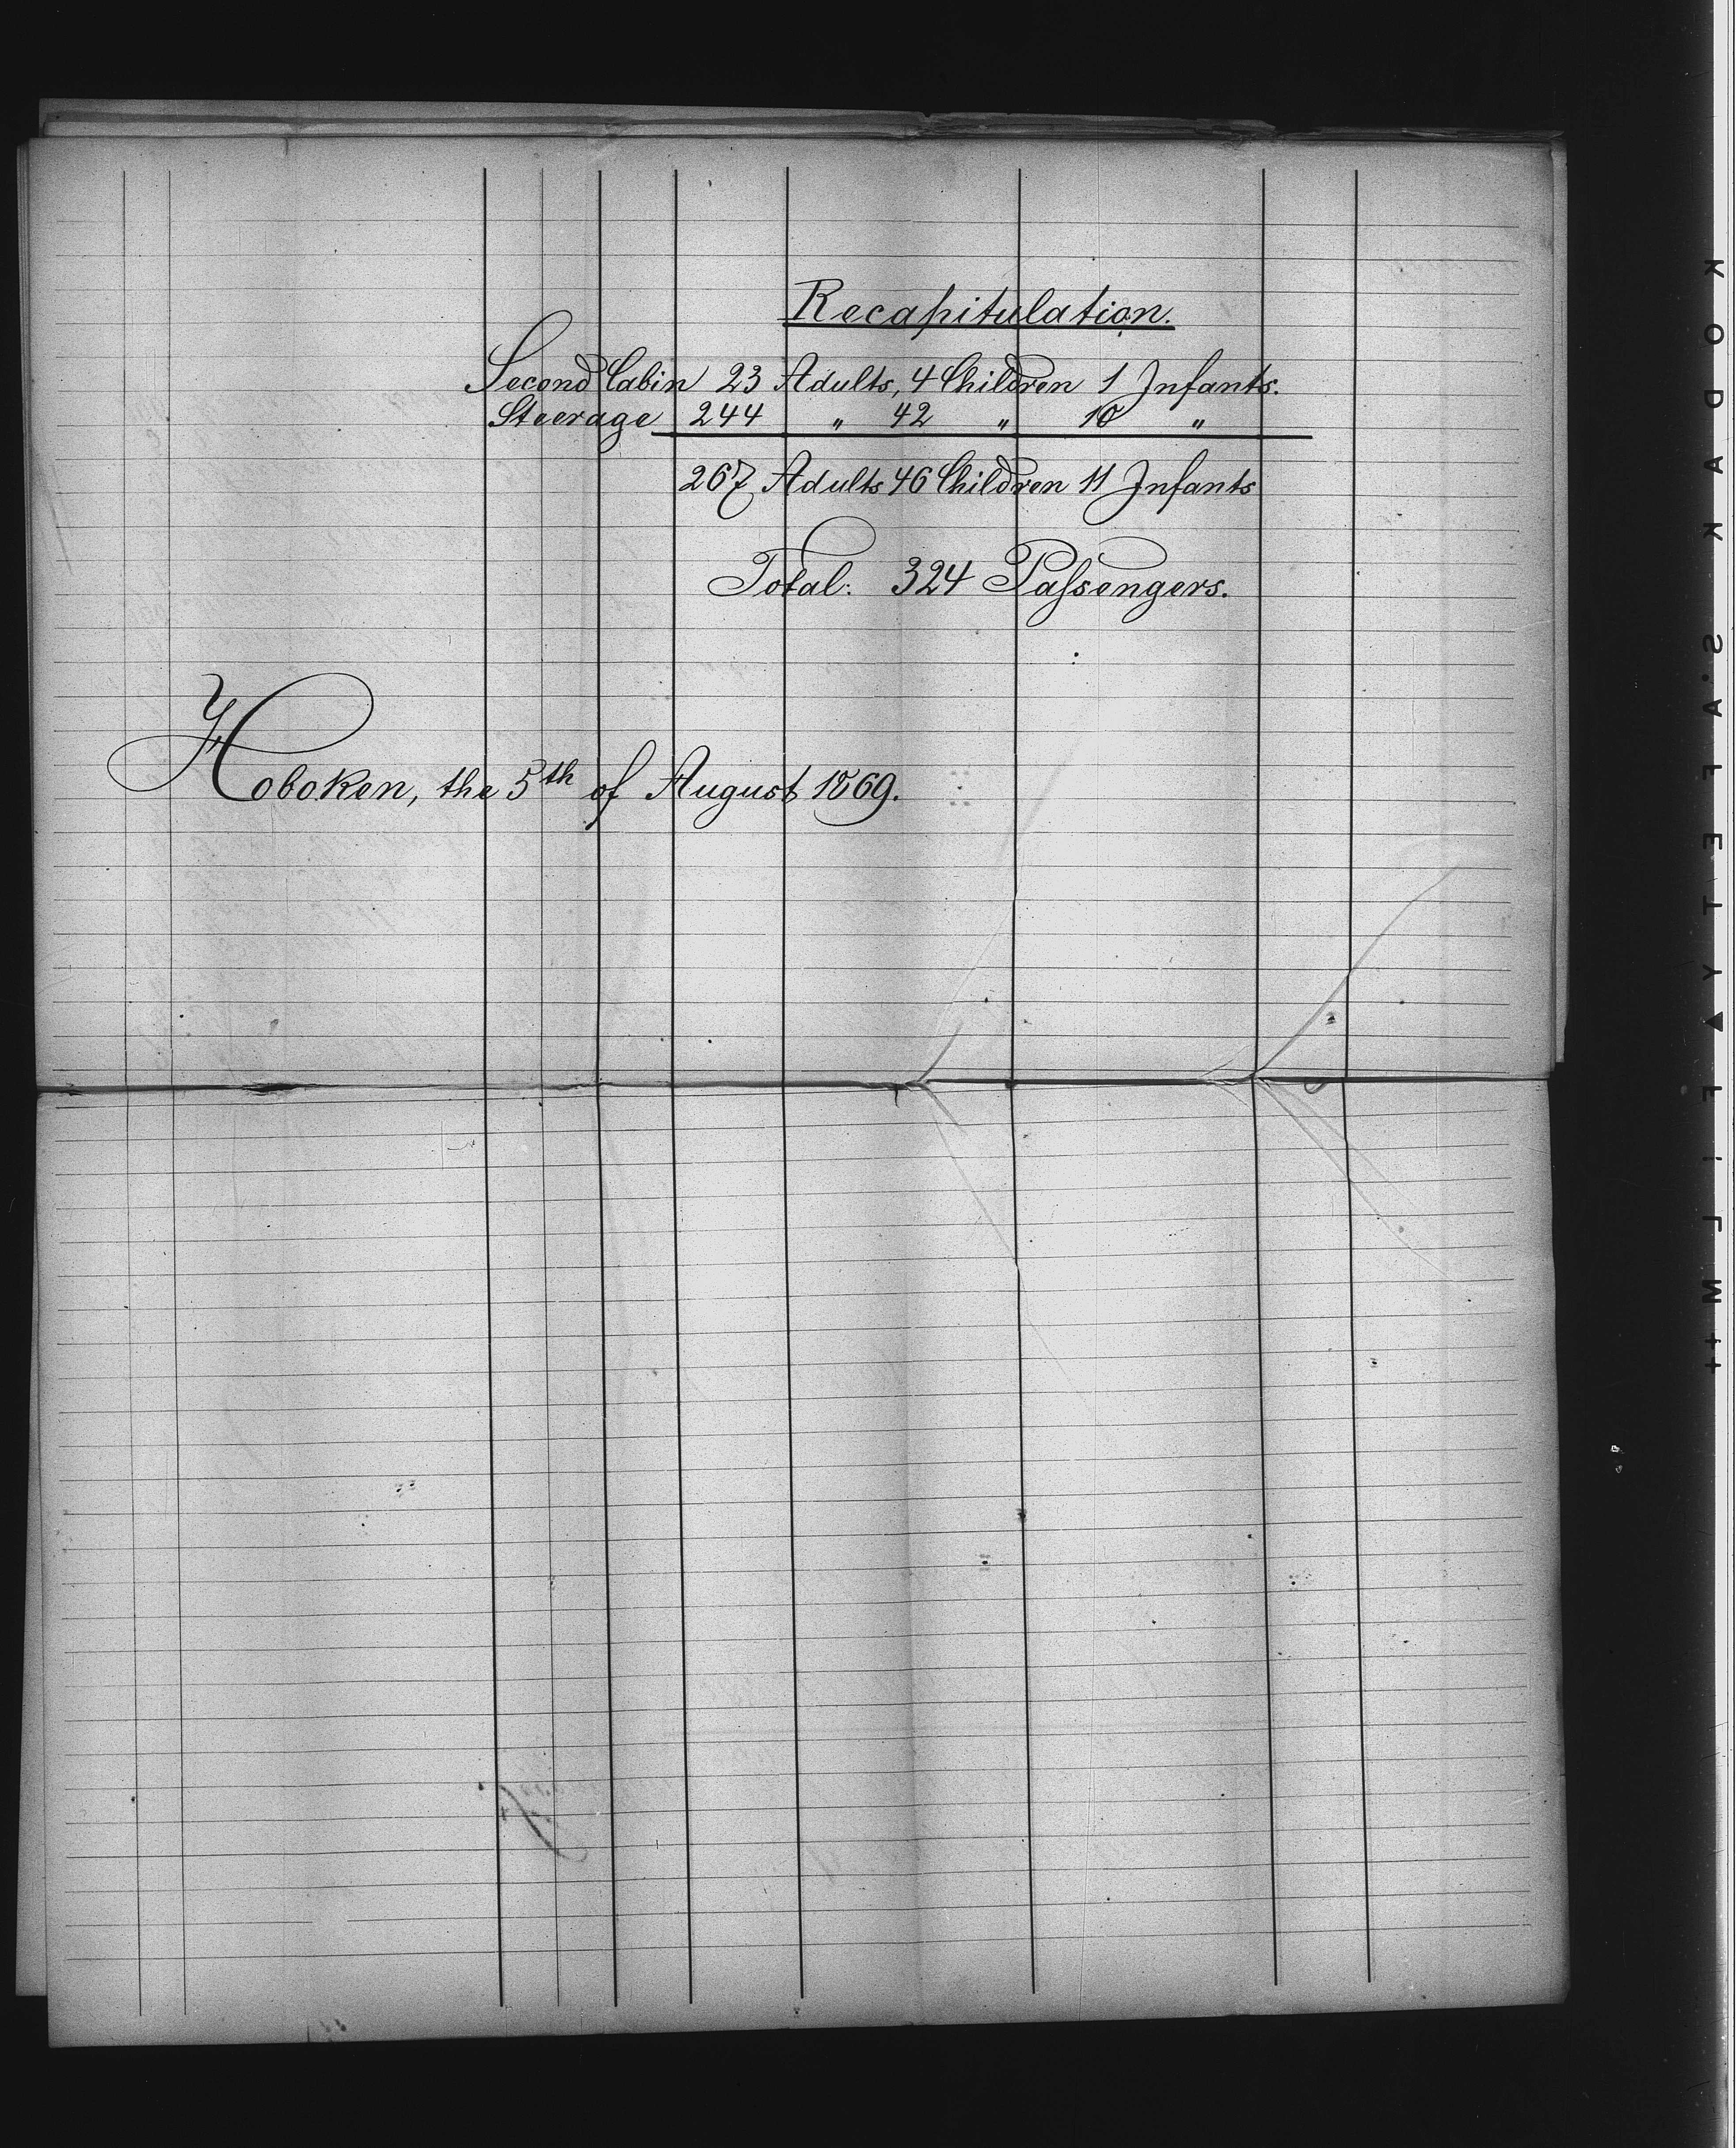 Recapitulation.
Second Cabin 23 Adults, 4 Children 1 Infants.
Steerage 244 " 42 " 10 "
267 Adults 46 Children 11 Infants
Total: 324 Passengers.
Hoboken, the 5th of August 1869.
KODAK SAFETY ▲ FILM ++